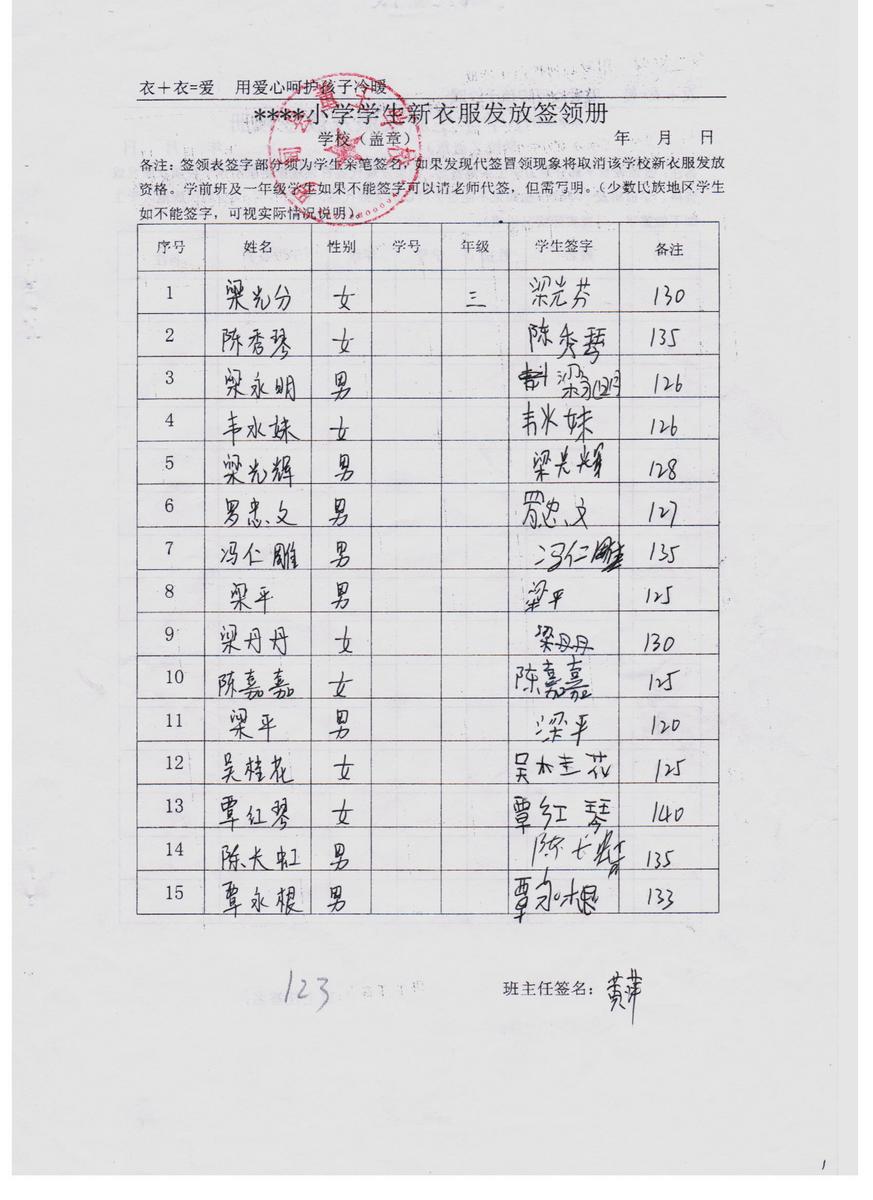 衣＋衣=爱 用爱心呵护孩子冷暖
****小学学生新衣服发放签领册
学校（盖章） 年 月 日
备注：签领表签字部分须为学生亲笔签名，如果发现代签冒领现象将取消该学校新衣服发放
资格。学前班及一年级学生如果不能签字可以请老师代签，但需写明。（少数民族地区学生
如不能签字，可视实际情况说明）。
序号 姓名 性别 学号 年级 学生签字 备注
1 梁光分 女 三 梁光芬 130
2 陈秀琴 女 陈秀琴 135
3 梁永明 男 梁永明 126
4 韦水妹 女 韦水妹 126
5 梁光辉 男 梁光辉 128
6 罗忠文 男 罗忠文 127
7 冯仁雕 男 冯仁雕 135
8 梁平 男 梁平 125
9 梁丹丹 女 梁丹丹 130
10 陈嘉嘉 女 陈嘉嘉 125
11 梁平 男 梁平 120
12 吴桂花 女 吴桂花 125
13 覃红琴 女 覃红琴 140
14 陈长虹 男 陈长 135
15 覃永根 男 覃永根 133
123 班主任签名：黄萍
1